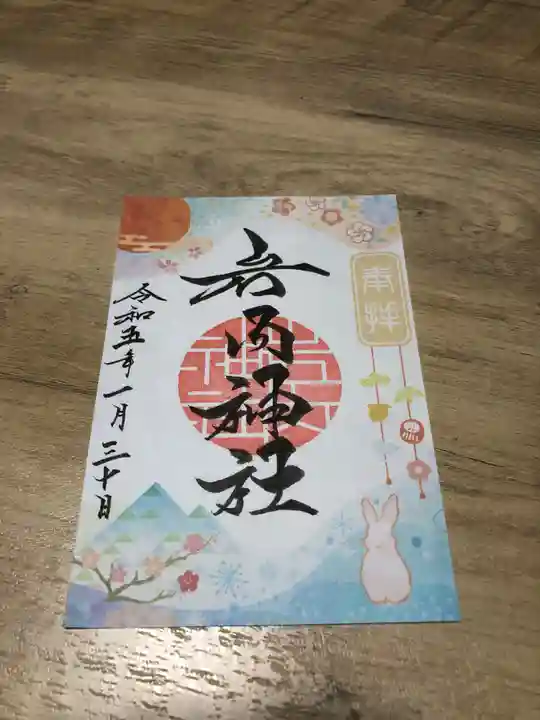 奉拝
岩内神社
令和五年一月三十日